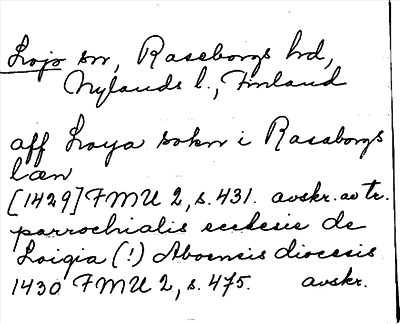 Lojo sn, Raseborgs hd,
Nylands l., Finland
aff Loya sokn i Rasaborgs
læn
[1429] FMU 2, s. 431. avskr. av tr.
parrochialis ecclesie de
Loigia (!) Aboensis diocesis
1430 FMU 2, s. 475. avskr.